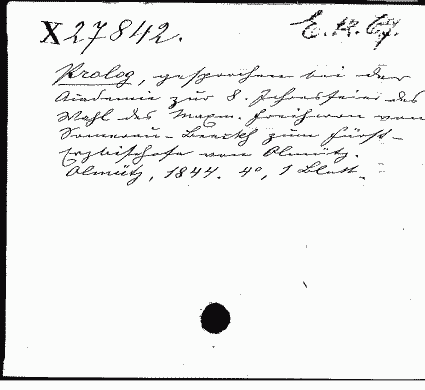 X 27842. E. 12. 67.
Prolog, gesprochen bei der
Academie zur 8. Jahresfeier des
Wahl des Maxm. Freiherrn von
Somerau-Beeckh zum Fürst-
Erzbischofe von Olmütz.
Olmütz, 1844. 4º, 1 Blatt.